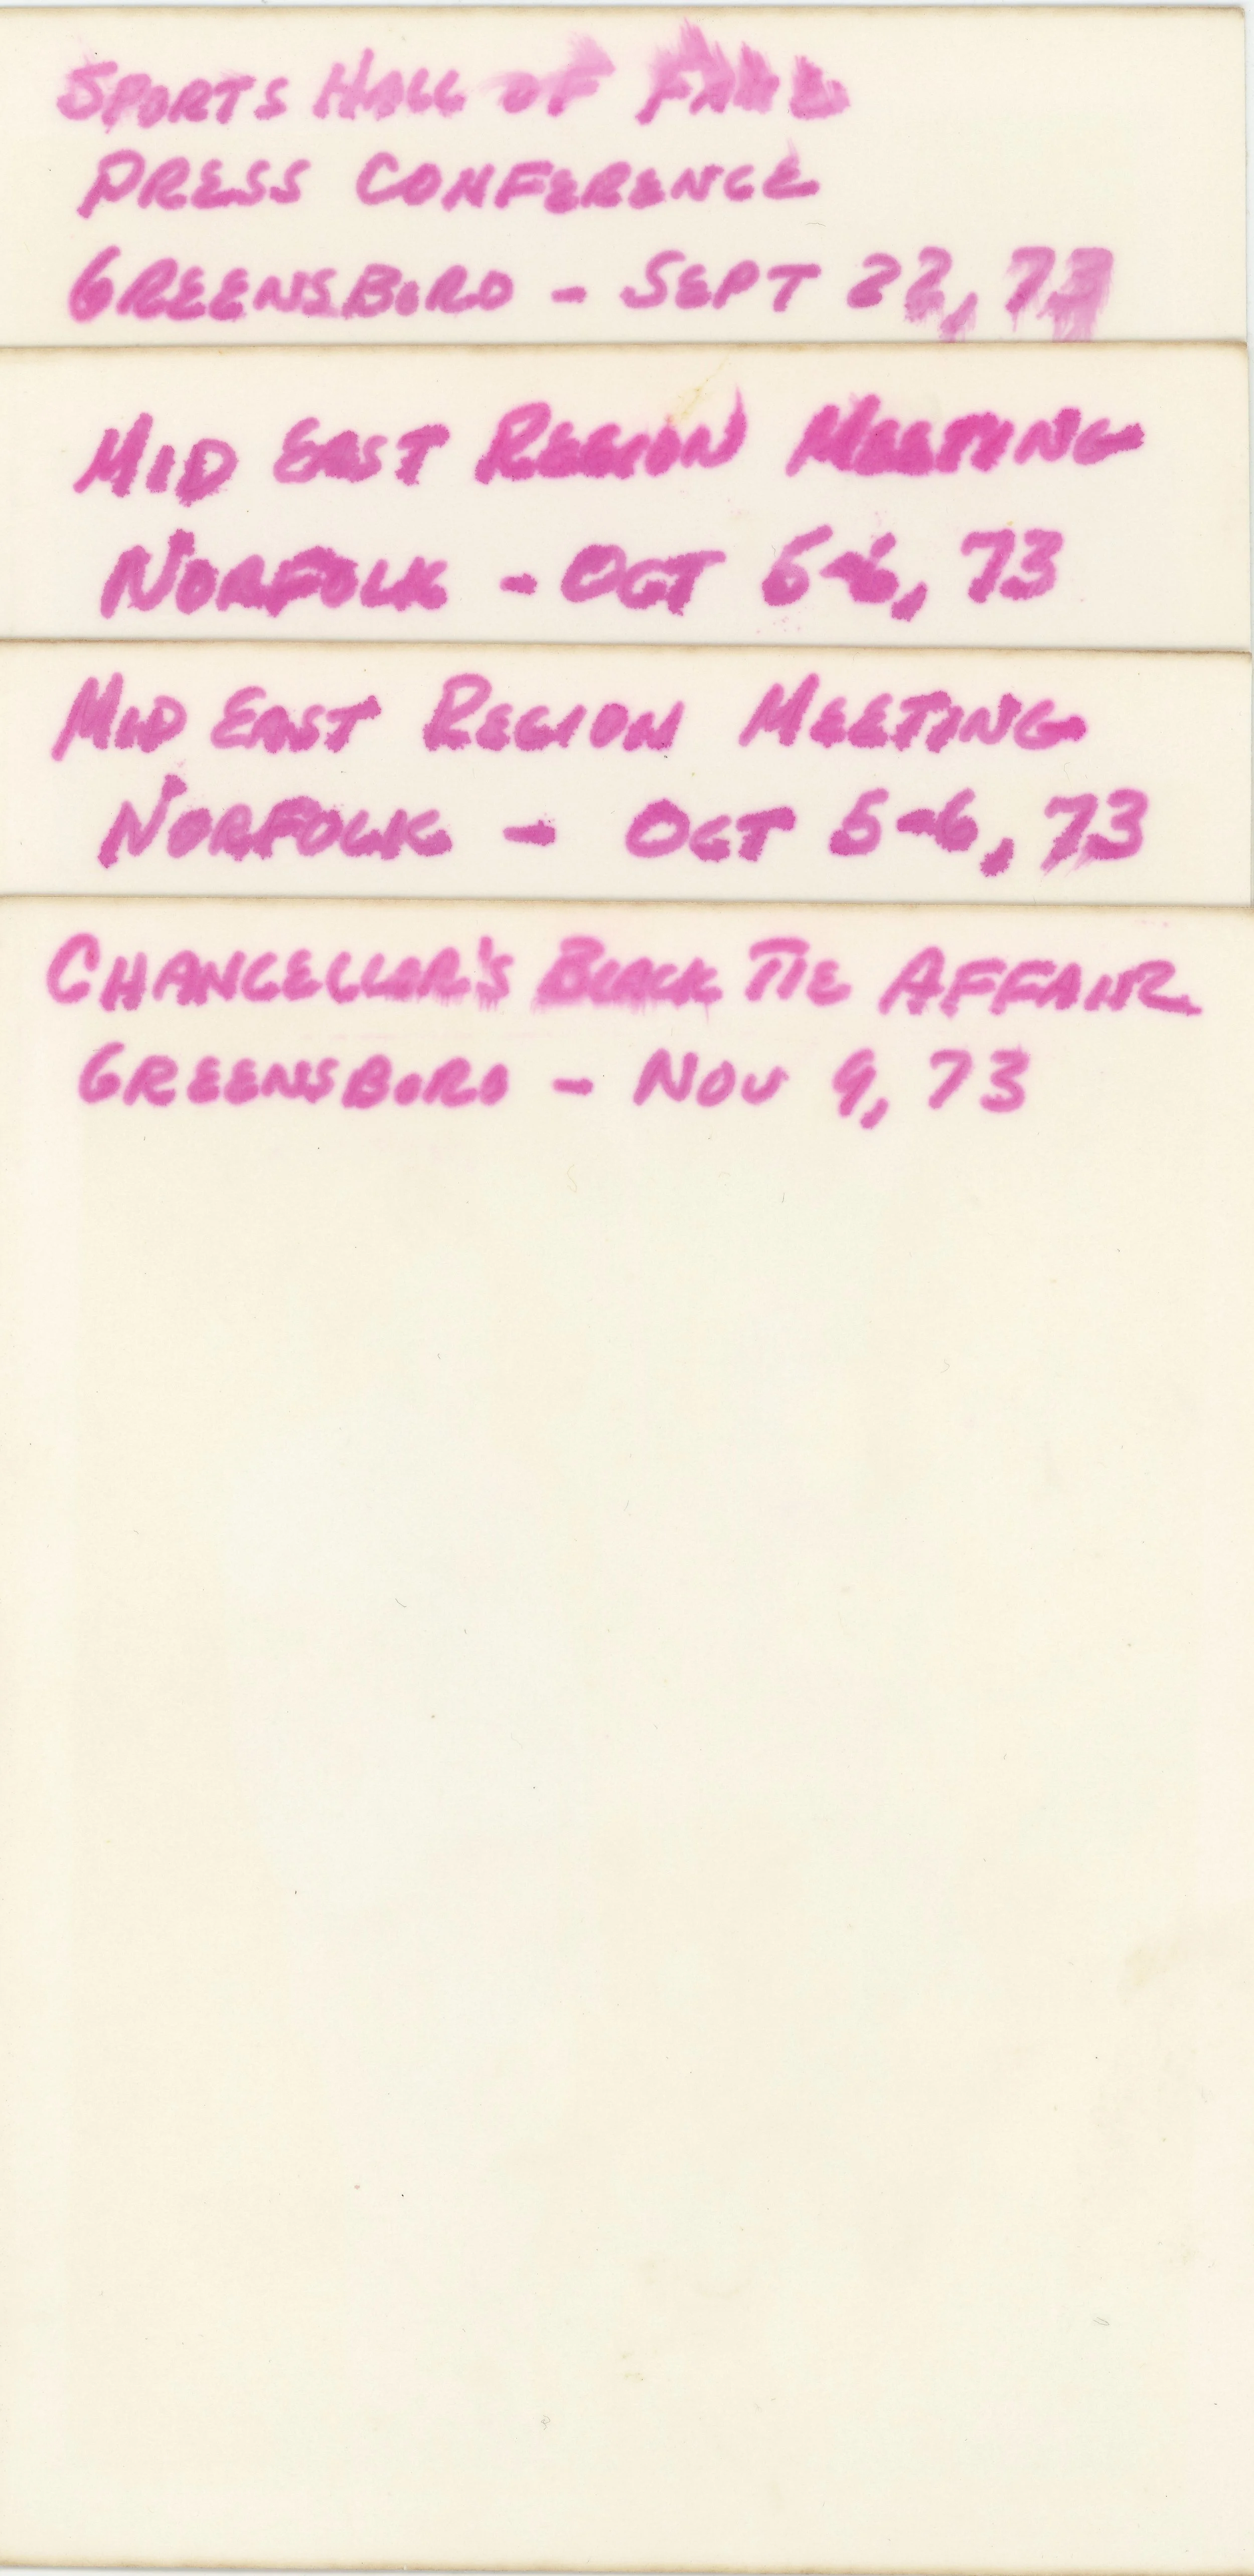 SPORTS HALL OF FAME
PRESS CONFERENCE
GREENSBORO - SEPT 22, 73
MID EAST REGION MEETING
NORFOLK - OCT 5-6, 73
MID EAST REGION MEETING
NORFOLK - OCT 5-6, 73
CHANCELLOR'S BLACK TIE AFFAIR
GREENSBORO - NOV 9, 73